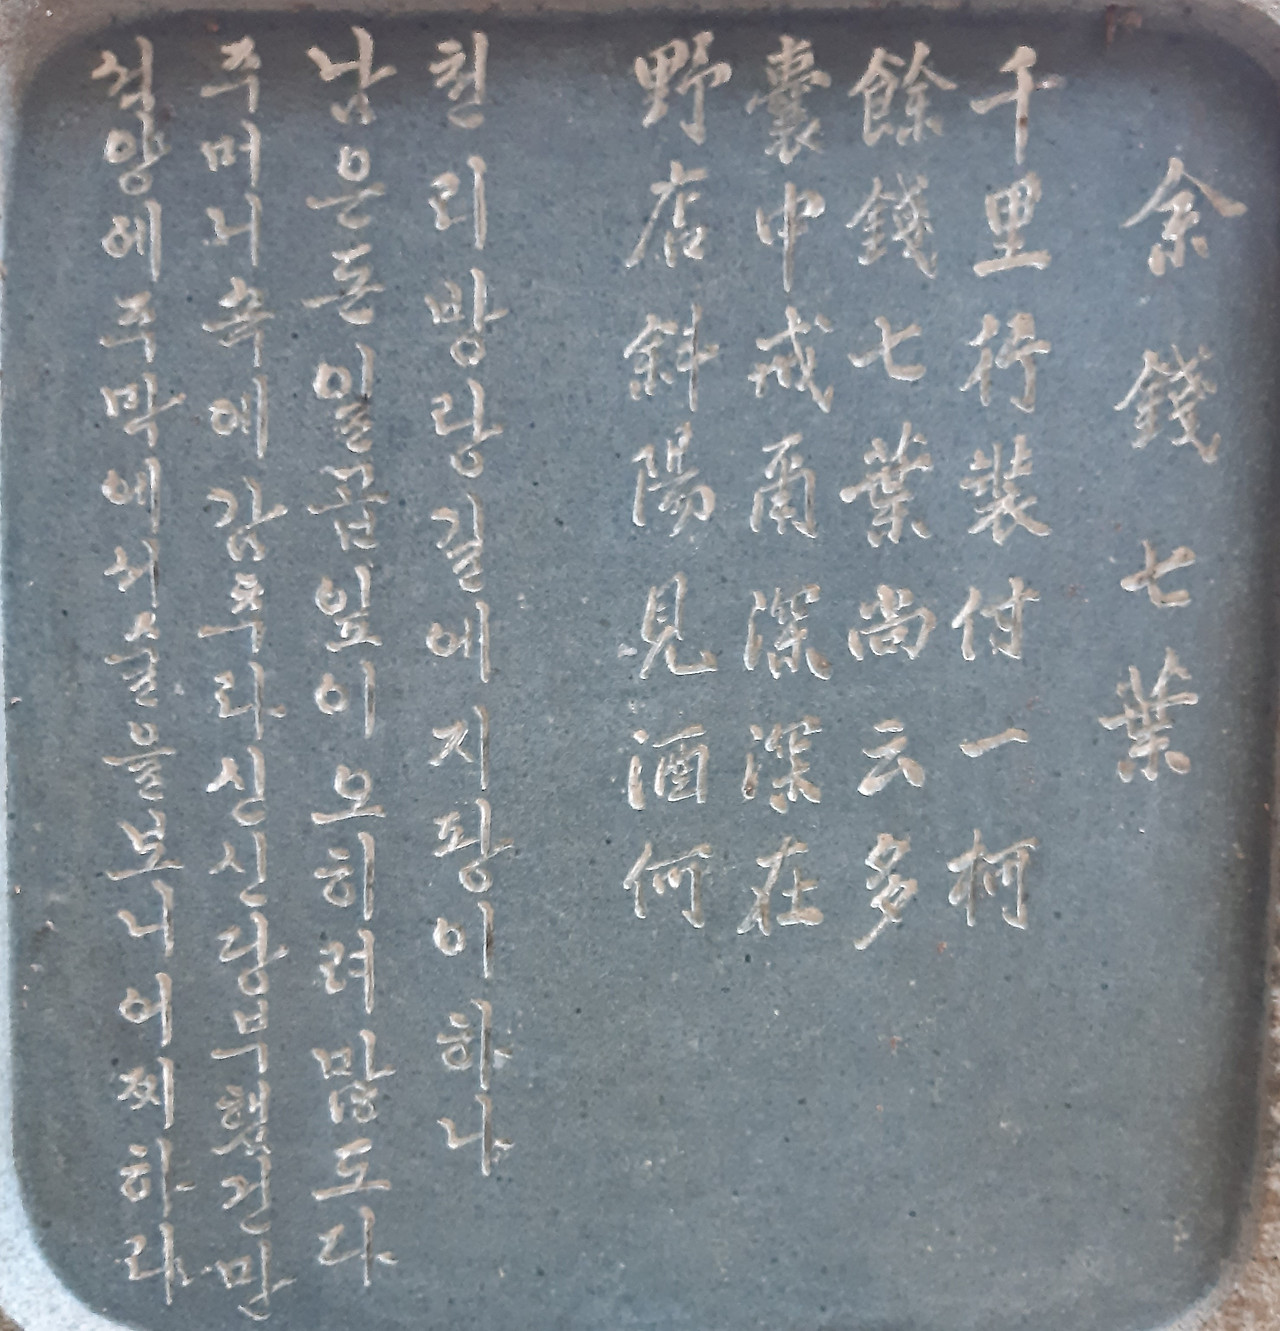 余錢七葉
千里行裝付一柯
餘錢七葉尚云多
囊中戒爾深深在
野店斜陽見酒何
천리방랑길에지팡이하나
남은돈일곱잎이오히려많도다
주머니속에감추라신신당부했건만
석양에주막에서술을보니어찌하랴